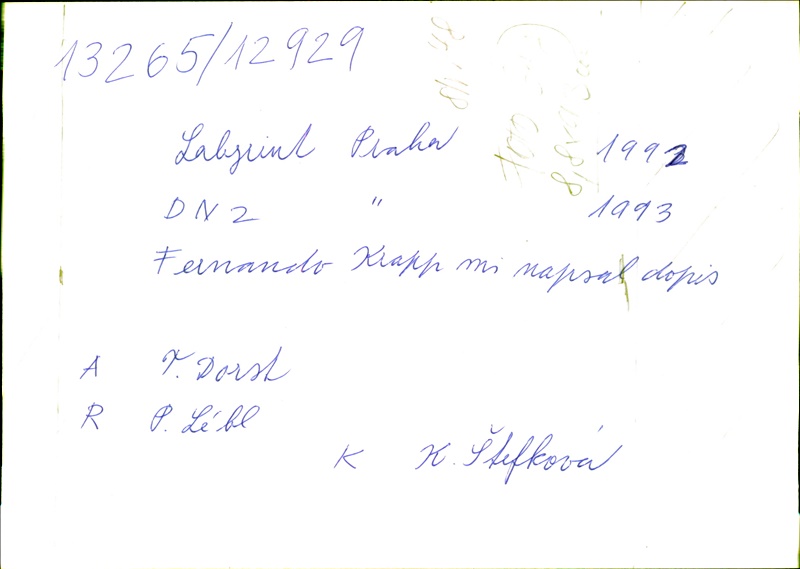 13265/12929
Labyrint Praha 1992
DNZ " 1993
Fernando Krapp mi napsal dopis
A T. Dorst
R P. Lébl
K K. Štefková